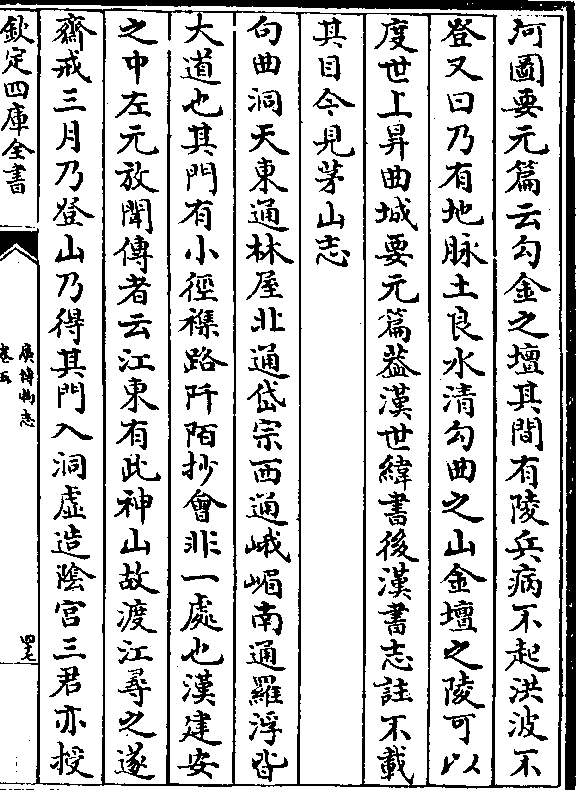 河圖要元篇云勾金之壇其間有陵兵病不起洪波不
登又曰乃有地脉土良水清勾曲之山金壇之陵可以
度世上昇曲城要元篇葢漢世緯書後漢書志註不載
其目今見茅山志
句曲洞天東通林屋北通岱宗西通峨嵋南通羅浮皆
大道也其門有小徑襍路阡陌抄會非一處也漢建安
之中左元放聞傳者云江東有此神山故渡江尋之遂
齋戒三月乃登山乃得其門入洞虛造陰宮三君亦授
欽定四庫全書
廣博物志
卷五
四七